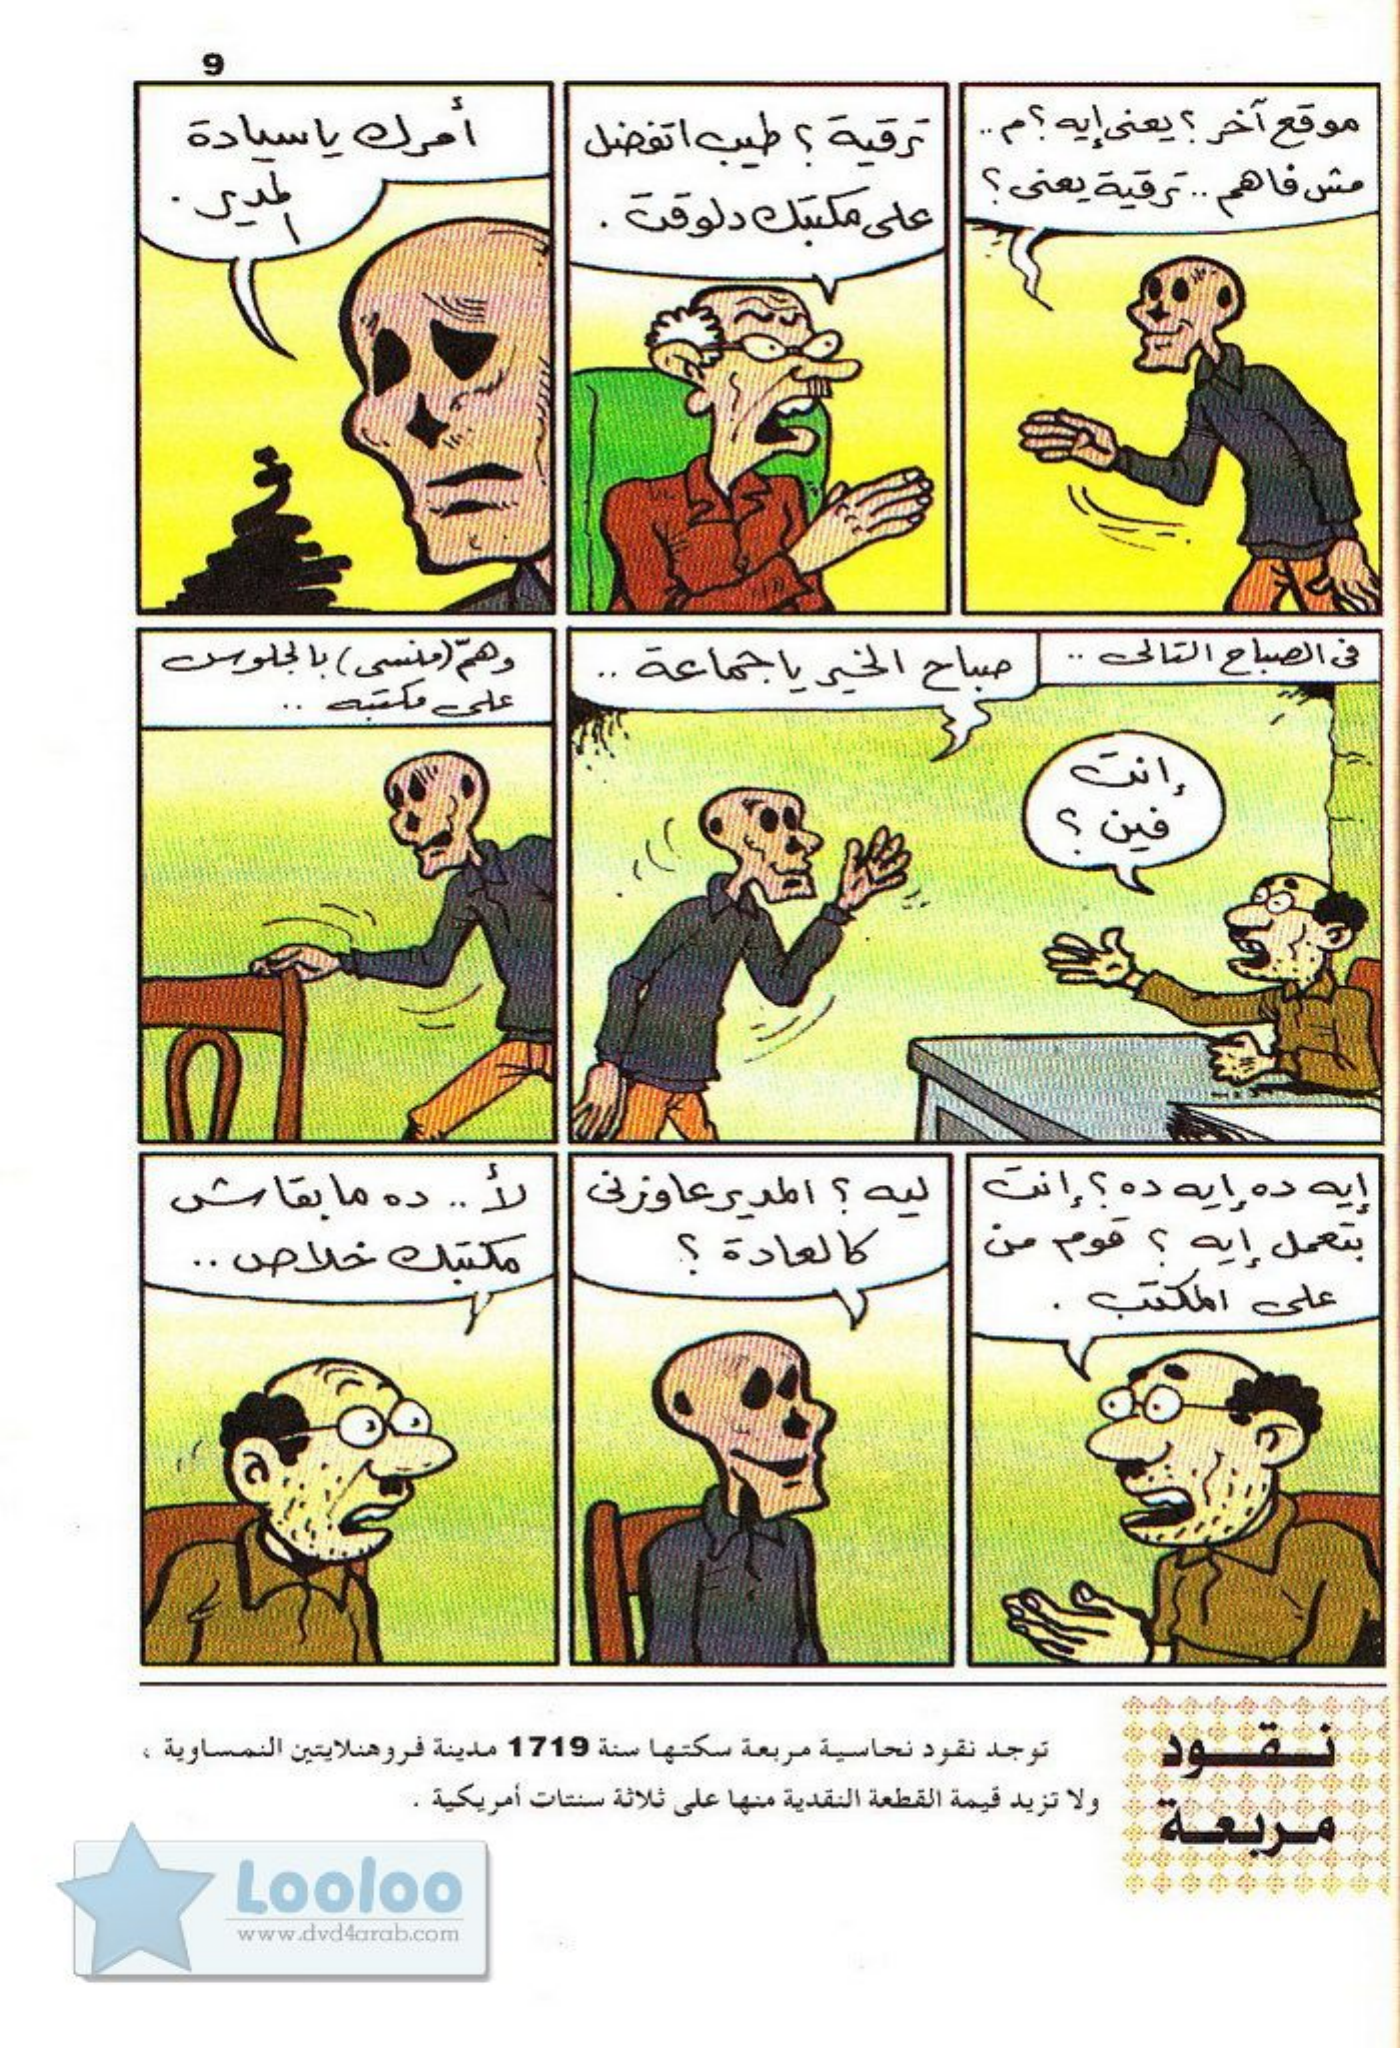 9
موقع آخر ؟ يعنى إيه ؟ م ..
مش فاهم .. ترقية يعنى ؟
ترقية ؟ طيب اتفضل
على مكتبك دلوقت .
أمرك يا سيادة
المدير .
فى الصباح التالى ..
صباح الخير يا جماعة ..
إنت
فين ؟
وهمّ (منسى) بالجلوس
على مكتبه ..
إيه ده إيه ده ؟ إنت
بتعمل إيه ؟ قوم من
على المكتب .
ليه ؟ المدير عاوزنى
كالعادة ؟
لأ .. ده ما بقاش
مكتبك خلاص ..
نقود
مربعة
توجد نقود نحاسية مربعة سكتها سنة 1719 مدينة فروهنلايتين النمساوية ،
ولا تزيد قيمة القطعة النقدية منها على ثلاثة سنتات أمريكية .
Looloo
www.dvd4arab.com